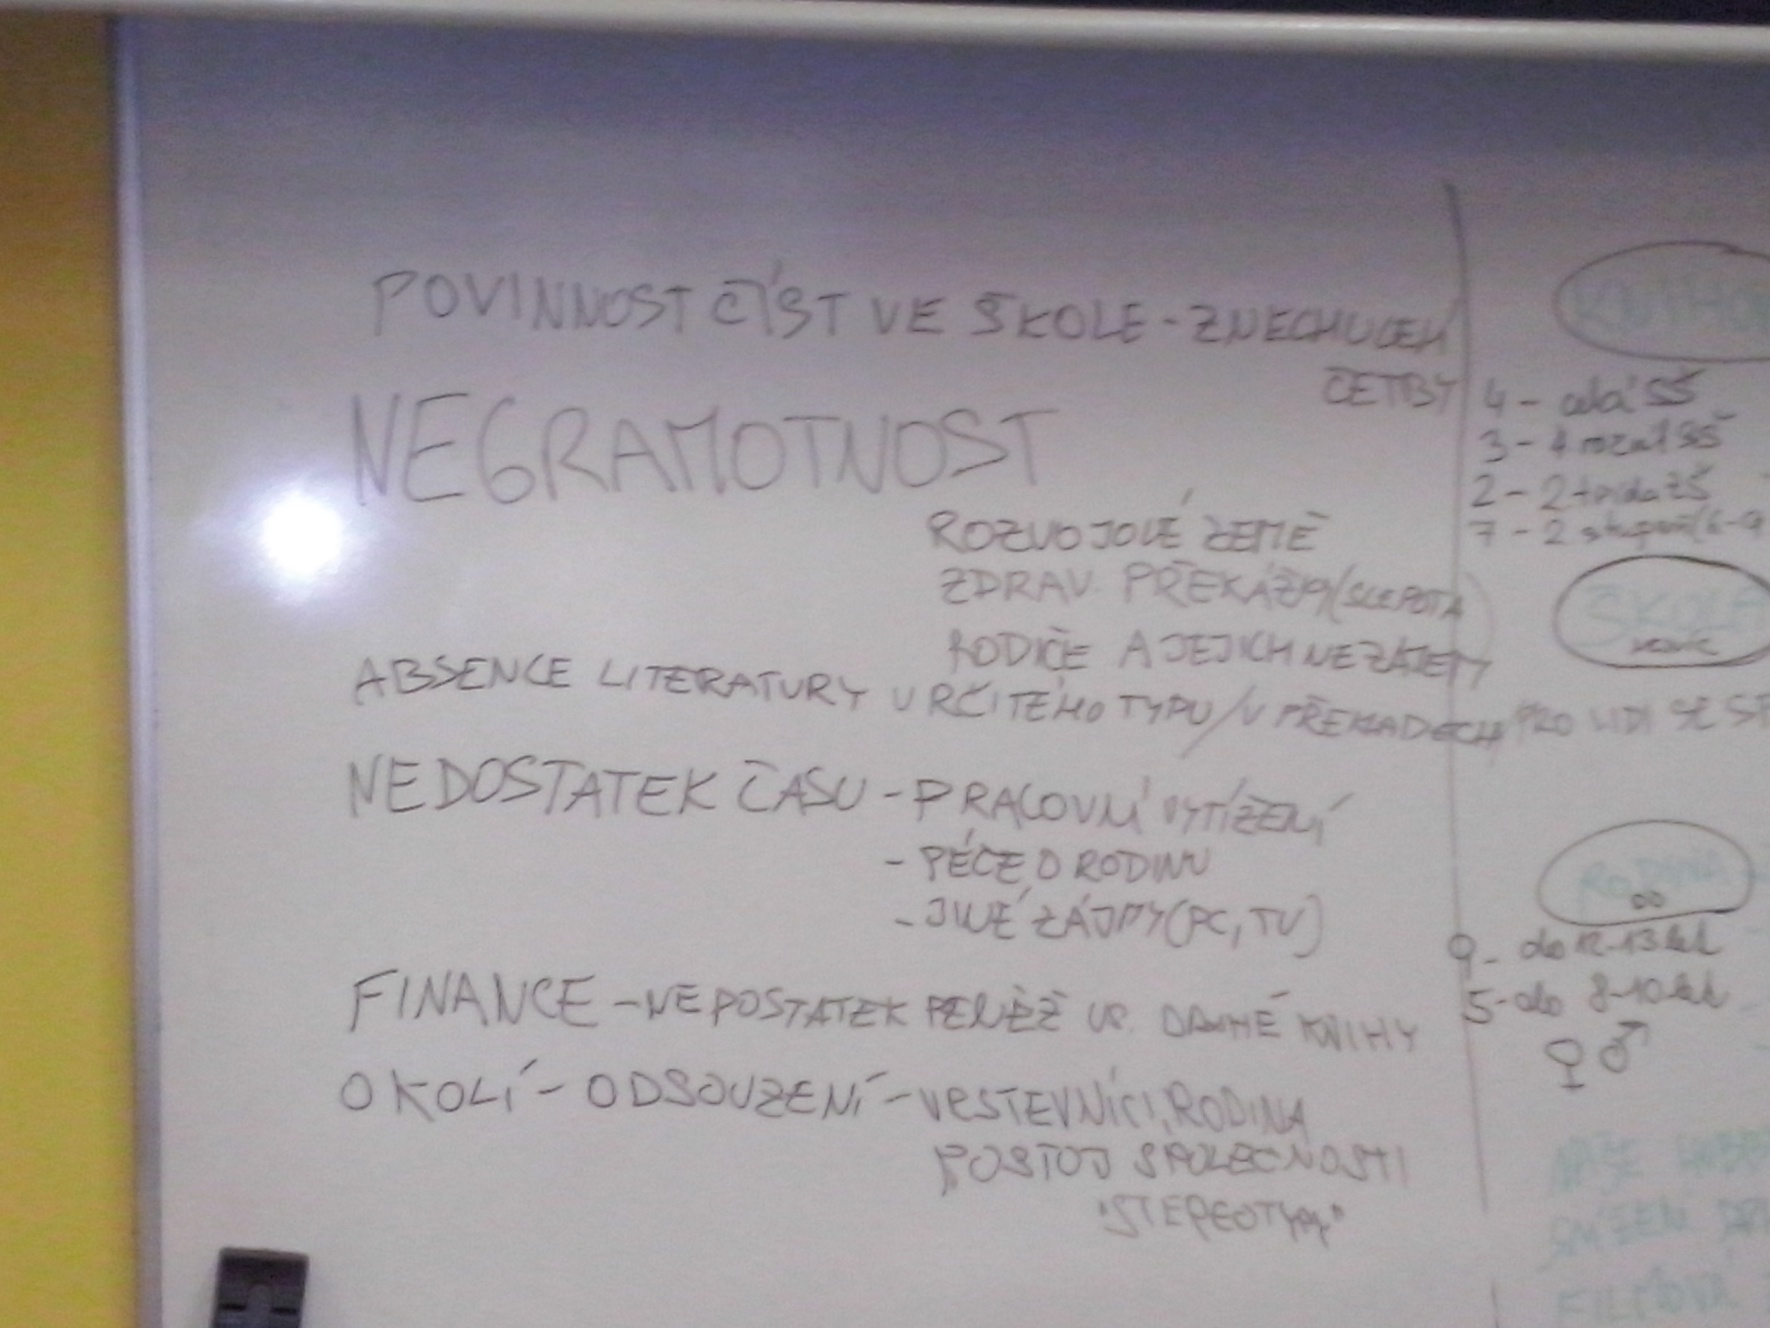 POVINNOST ČÍST VE ŠKOLE - ZNECHUCENÍ
ČETBY
NEGRAMOTNOST
ROZVOJOVÉ ZEMĚ
ZDRAV. PŘEKÁŽKY (SLEPOTA)
RODIČE A JEJICH NEZÁJEM
ABSENCE LITERATURY URČITÉHO TYPU / V PŘEKLADECH PRO LIDI SE
NEDOSTATEK ČASU - PRACOVNÍ VYTÍŽENÍ
- PÉČE O RODINU
- JINÉ ZÁJMY (PC, TV)
FINANCE - NEDOSTATEK PENĚZ VS. DRAHÉ KNIHY
OKOLÍ - ODSOUZENÍ - VRSTEVNÍCI, RODINA
POSTOJ SPOLEČNOSTI
"STEREOTYPY"
4 - celá SŠ
3 - 4 roz
2 - 2 třída ZŠ
7 - 2 stupeň (6-9
ŠKOLA
RODINA
9 - do 12-13 let
5 - do 8-10 let
♀ ♂